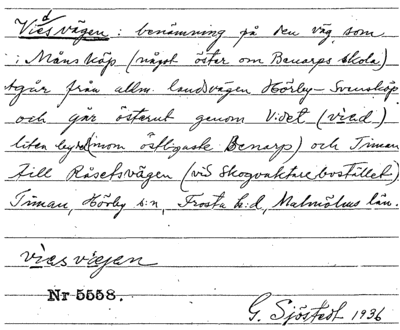 Viedsvägen: benämning på den väg som
i Måns Köp (något öster om Benarps skola)
utgår från allm. landsvägen Hörby-Svensköp
och går österut genom Videt (vied)
liten by (inom östligaste Benarp) och Timan
till Råsetsvägen (vid skogvaktarebostället)
Timan, Hörby s:n, Frosta h:d, Malmöhus län.
viesviejen
Nr 5558.
G. Sjöstedt 1936